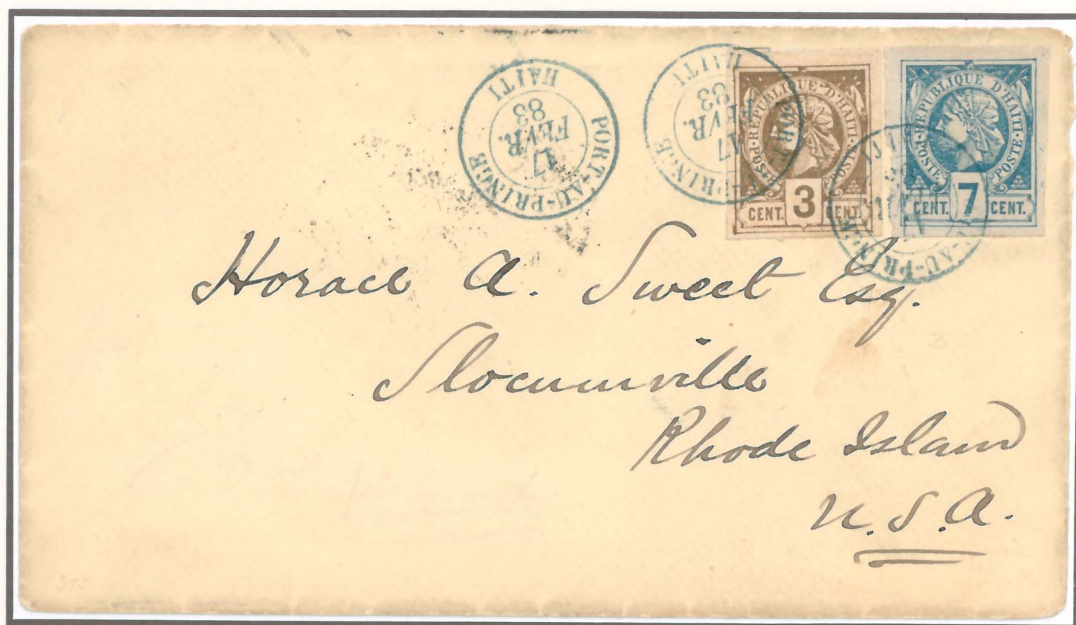 PORT-AU-PRINCE
17
FEVR.
83
HAITI
-PRINCE
17
FEVR.
83
HAITI
POSTE·REPUBLIQUE D'HAITI·POSTE
CENT. 3 CENT.
POSTE·REPUBLIQUE D'HAITI·POSTE
CENT. 7 CENT.
-AU-PRIN
Horace A. Sweet Esq.
Slocumville
Rhode Island
U.S.A.
3